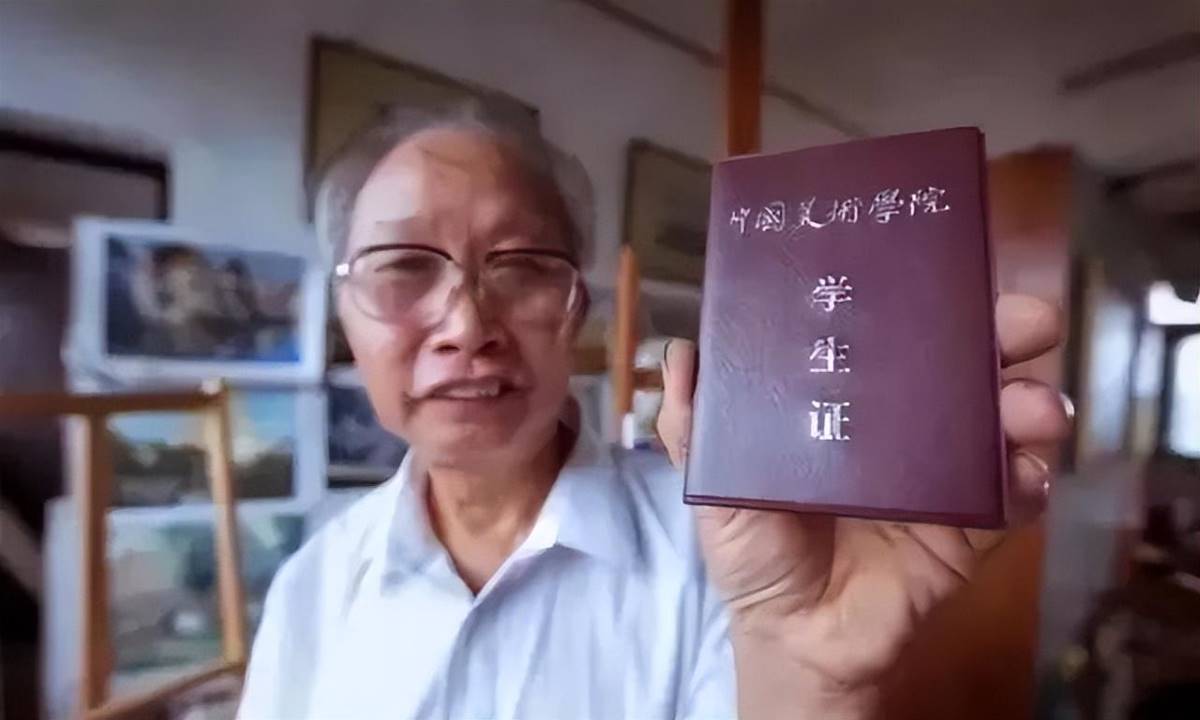 中國美術學院
学
生
证